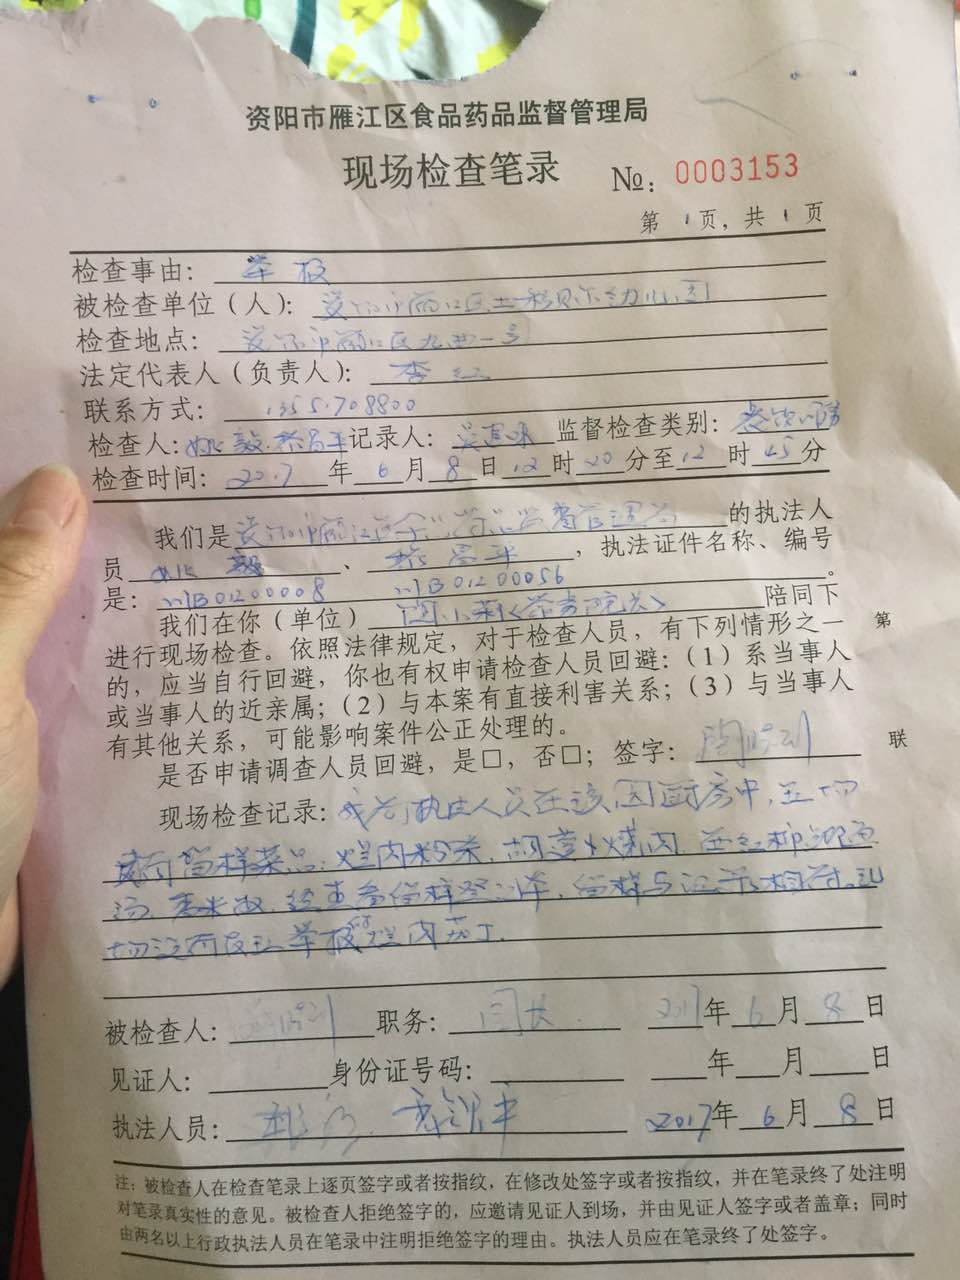 资阳市雁江区食品药品监督管理局
现场检查笔录
№: 0003153
第 1 页，共 1 页
检查事由： 举报
被检查单位（人）： 资阳市雁江区 幼儿园
检查地点： 资阳市雁江区 一号
法定代表人（负责人）： 李红
联系方式：
检查人： 姚毅 记录人： 监督检查类别：
检查时间： 2017 年 6 月 8 日 12 时 20 分至 12 时 45 分
我们是 资阳市雁江区食品药品监督管理局 的执法人
员 姚毅 、 ，执法证件名称、编号
是： 川B01200008 川B01200056 。
我们在你（单位） 陪同下
进行现场检查。依照法律规定，对于检查人员，有下列情形之一
的，应当自行回避，你也有权申请检查人员回避：（1）系当事人
或当事人的近亲属；（2）与本案有直接利害关系；（3）与当事人
有其他关系，可能影响案件公正处理的。
是否申请调查人员回避，是□，否□； 签字：
第
联
现场检查记录： 我局执法人员在该园厨房中，
留样菜品： 烂肉粉条、胡萝卜烧肉、西红柿
汤、 经查看留样登记本，留样与记录相符，
举报 烂肉茄丁.
被检查人： 职务： 园长. 2017 年 6 月 8 日
见证人： 身份证号码： 年 月 日
执法人员： 2017 年 6 月 8 日
注：被检查人在检查笔录上逐页签字或者按指纹，在修改处签字或者按指纹，并在笔录终了处注明
对笔录真实性的意见。被检查人拒绝签字的，应邀请见证人到场，并由见证人签字或者盖章；同时
由两名以上行政执法人员在笔录中注明拒绝签字的理由。执法人员应在笔录终了处签字。